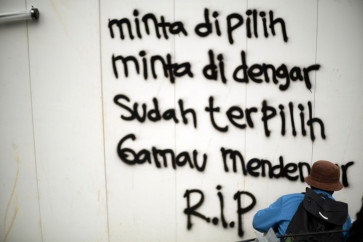 minta dipilih
minta di dengar
Sudah terpilih
Gamau mendengar
R.I.P